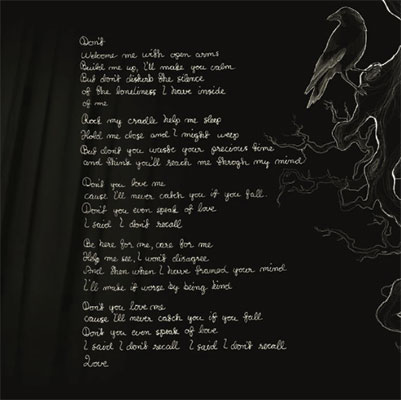 Don't
Welcome me with open arms
Build me up, I'll make you calm
But don't disturb the silence
of the loneliness I have inside
of me
Rock my cradle help me sleep
Hold me close and I might weep
But don't you waste your precious time
and think you'll reach me throgh my mind
Don't you love me
cause I'll never catch you if you fall.
Don't you even speak of love
I said I don't recall
Be here for me, care for me
Help me see, I won't disagree
And then when I have framed your mind
I'll make it worse by being kind
Don't you love me
cause I'll never catch you if you fall
Don't you even speak of love
I said I don't recall I said I don't recall
Love